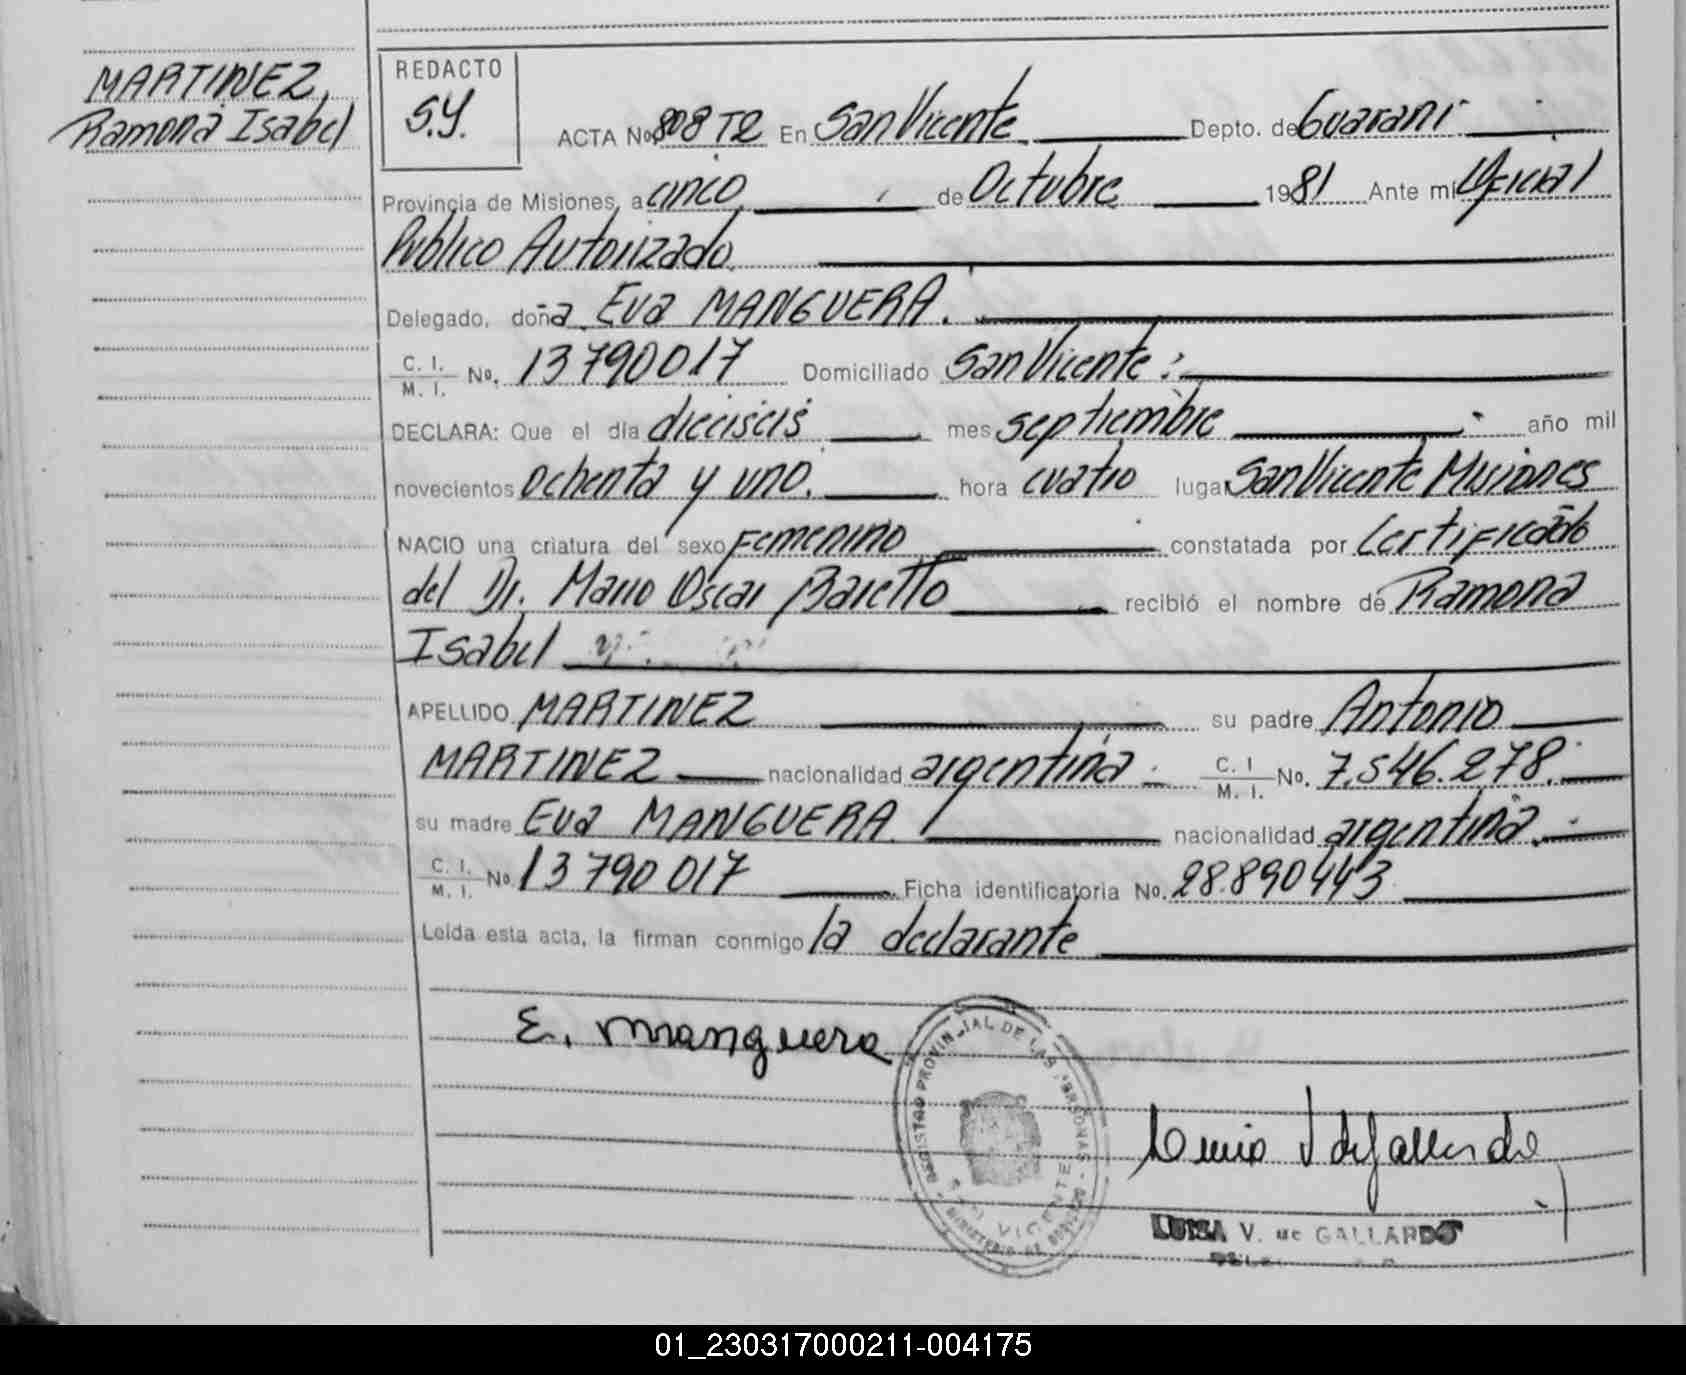 MARTINEZ,
Ramona Isabel
REDACTO
S.Y.
ACTA No. 808 T2 En San Vicente Depto. de Guarani
Provincia de Misiones, a cinco de Octubre 1981 Ante mi Oficial
Publico Autorizado
Delegado, doña Eva MANGUERA.
C. I. / M. I. No. 13790017 Domiciliado San Vicente
DECLARA: Que el día dieciseis mes septiembre año mil
novecientos ochenta y uno. hora cuatro lugar San Vicente Misiones
NACIO una criatura del sexo Femenino constatada por Certificado
del Dr. Mario Oscar Baretto recibió el nombre de Ramona
Isabel
APELLIDO MARTINEZ su padre Antonio
MARTINEZ nacionalidad argentina C. I. / M. I. No. 7.546.278.
su madre Eva MANGUERA nacionalidad argentina.
C. I. / M. I. No. 13790017 Ficha identificatoria No. 28.890443
Leída esta acta, la firman conmigo la declarante
E. Manguera
REGISTRO PROVINCIAL DE LAS PERSONAS
SAN VICENTE
MINISTERIO DE GOBIERNO
LUISA V. de GALLARDO
01_230317000211-004175